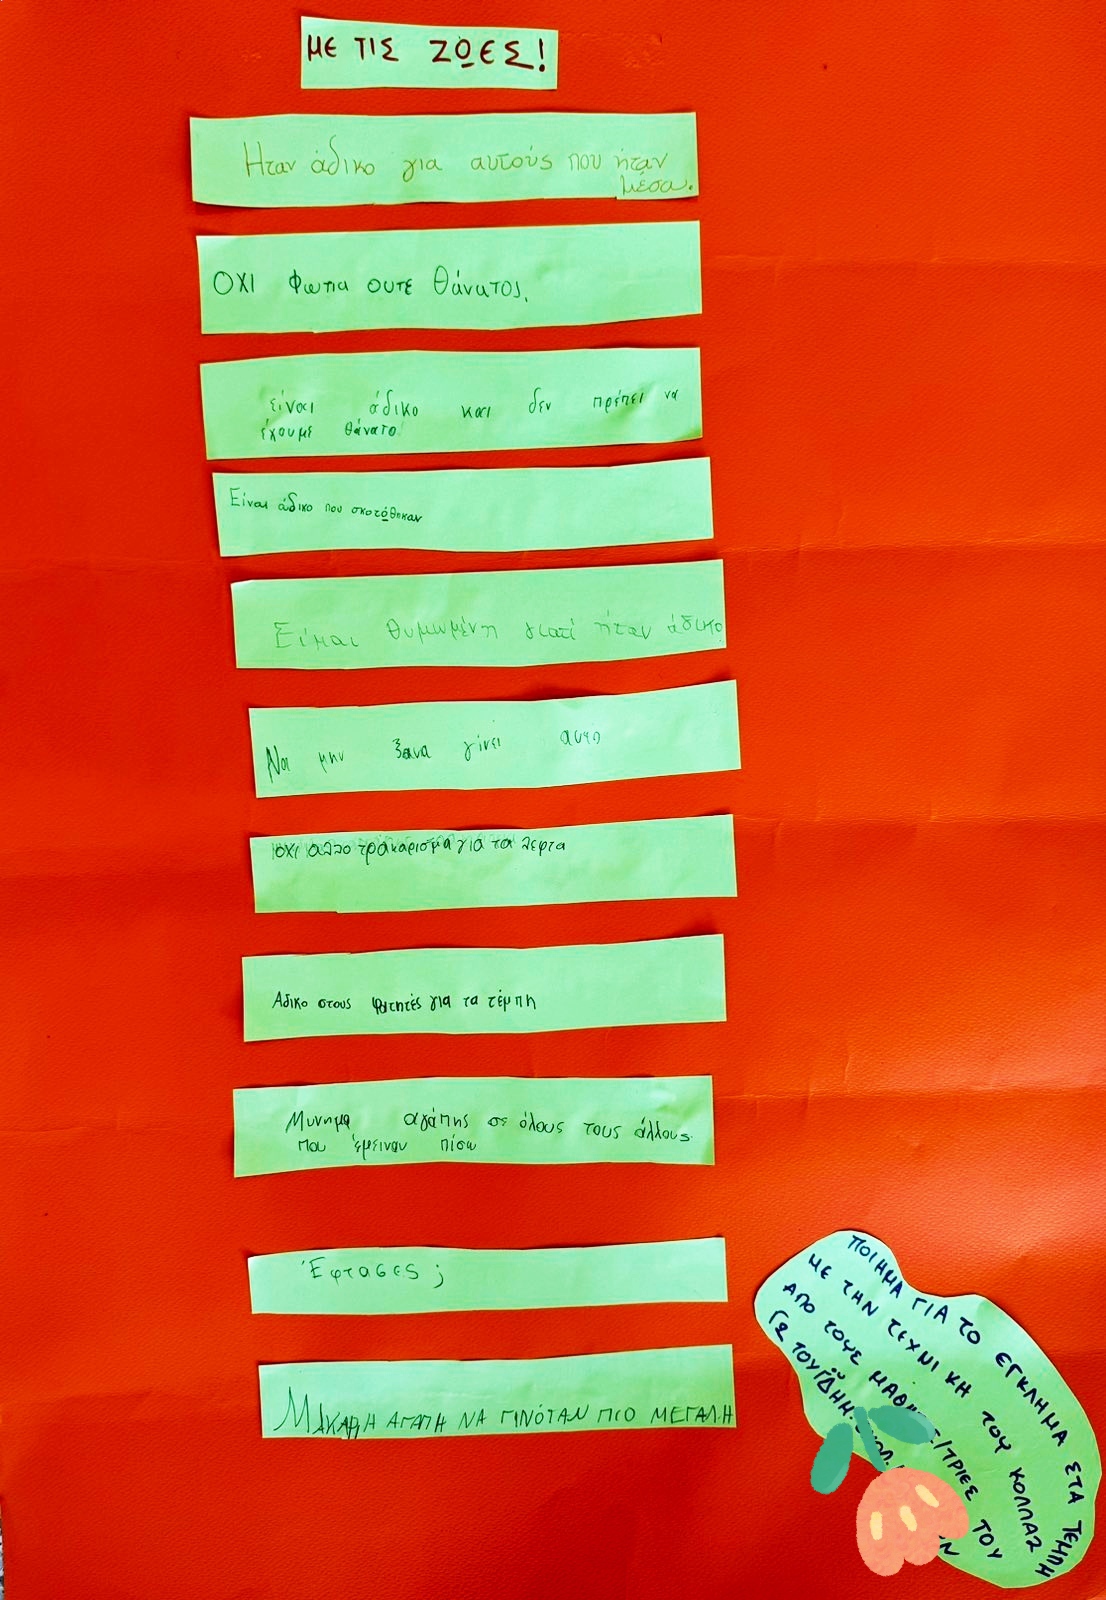 ΜΕ ΤΙΣ ΖΩΕΣ!
Ηταν άδικο για αυτούς που ήταν
μέσα.
ΟΧΙ Φωτια ουτε θάνατος.
είναι άδικο και δεν πρέπει να
έχουμε θάνατο!
Είναι άδικο που σκοτόθηκαν
Είμαι θυμωμένη γιατί ήταν άδικο
Να μην ξανα γίνει αυτό
οχι αλλο τρακαρισμα για τα λεφτα
Αδικο στους φοιτητές για τα τέμπη
Μυνημα αγάπης σε όλους τους άλλους
που έμειναν πίσω
Έφτασες;
ΜΑΚΑΡΙ Η ΑΓΑΠΗ ΝΑ ΓΙΝΟΤΑΝ ΠΙΟ ΜΕΓΑΛΗ
ΠΟΙΗΜΑ ΓΙΑ ΤΟ ΕΓΚΛΗΜΑ ΣΤΑ ΤΕΜΠΗ
ΜΕ ΤΗΝ ΤΕΧΝΙΚΗ ΤΟΥ ΚΟΛΛΑΖ
ΑΠΟ ΤΟΥΣ /ΤΡΙΕΣ ΤΟΥ
Γ2 ΤΟΥ